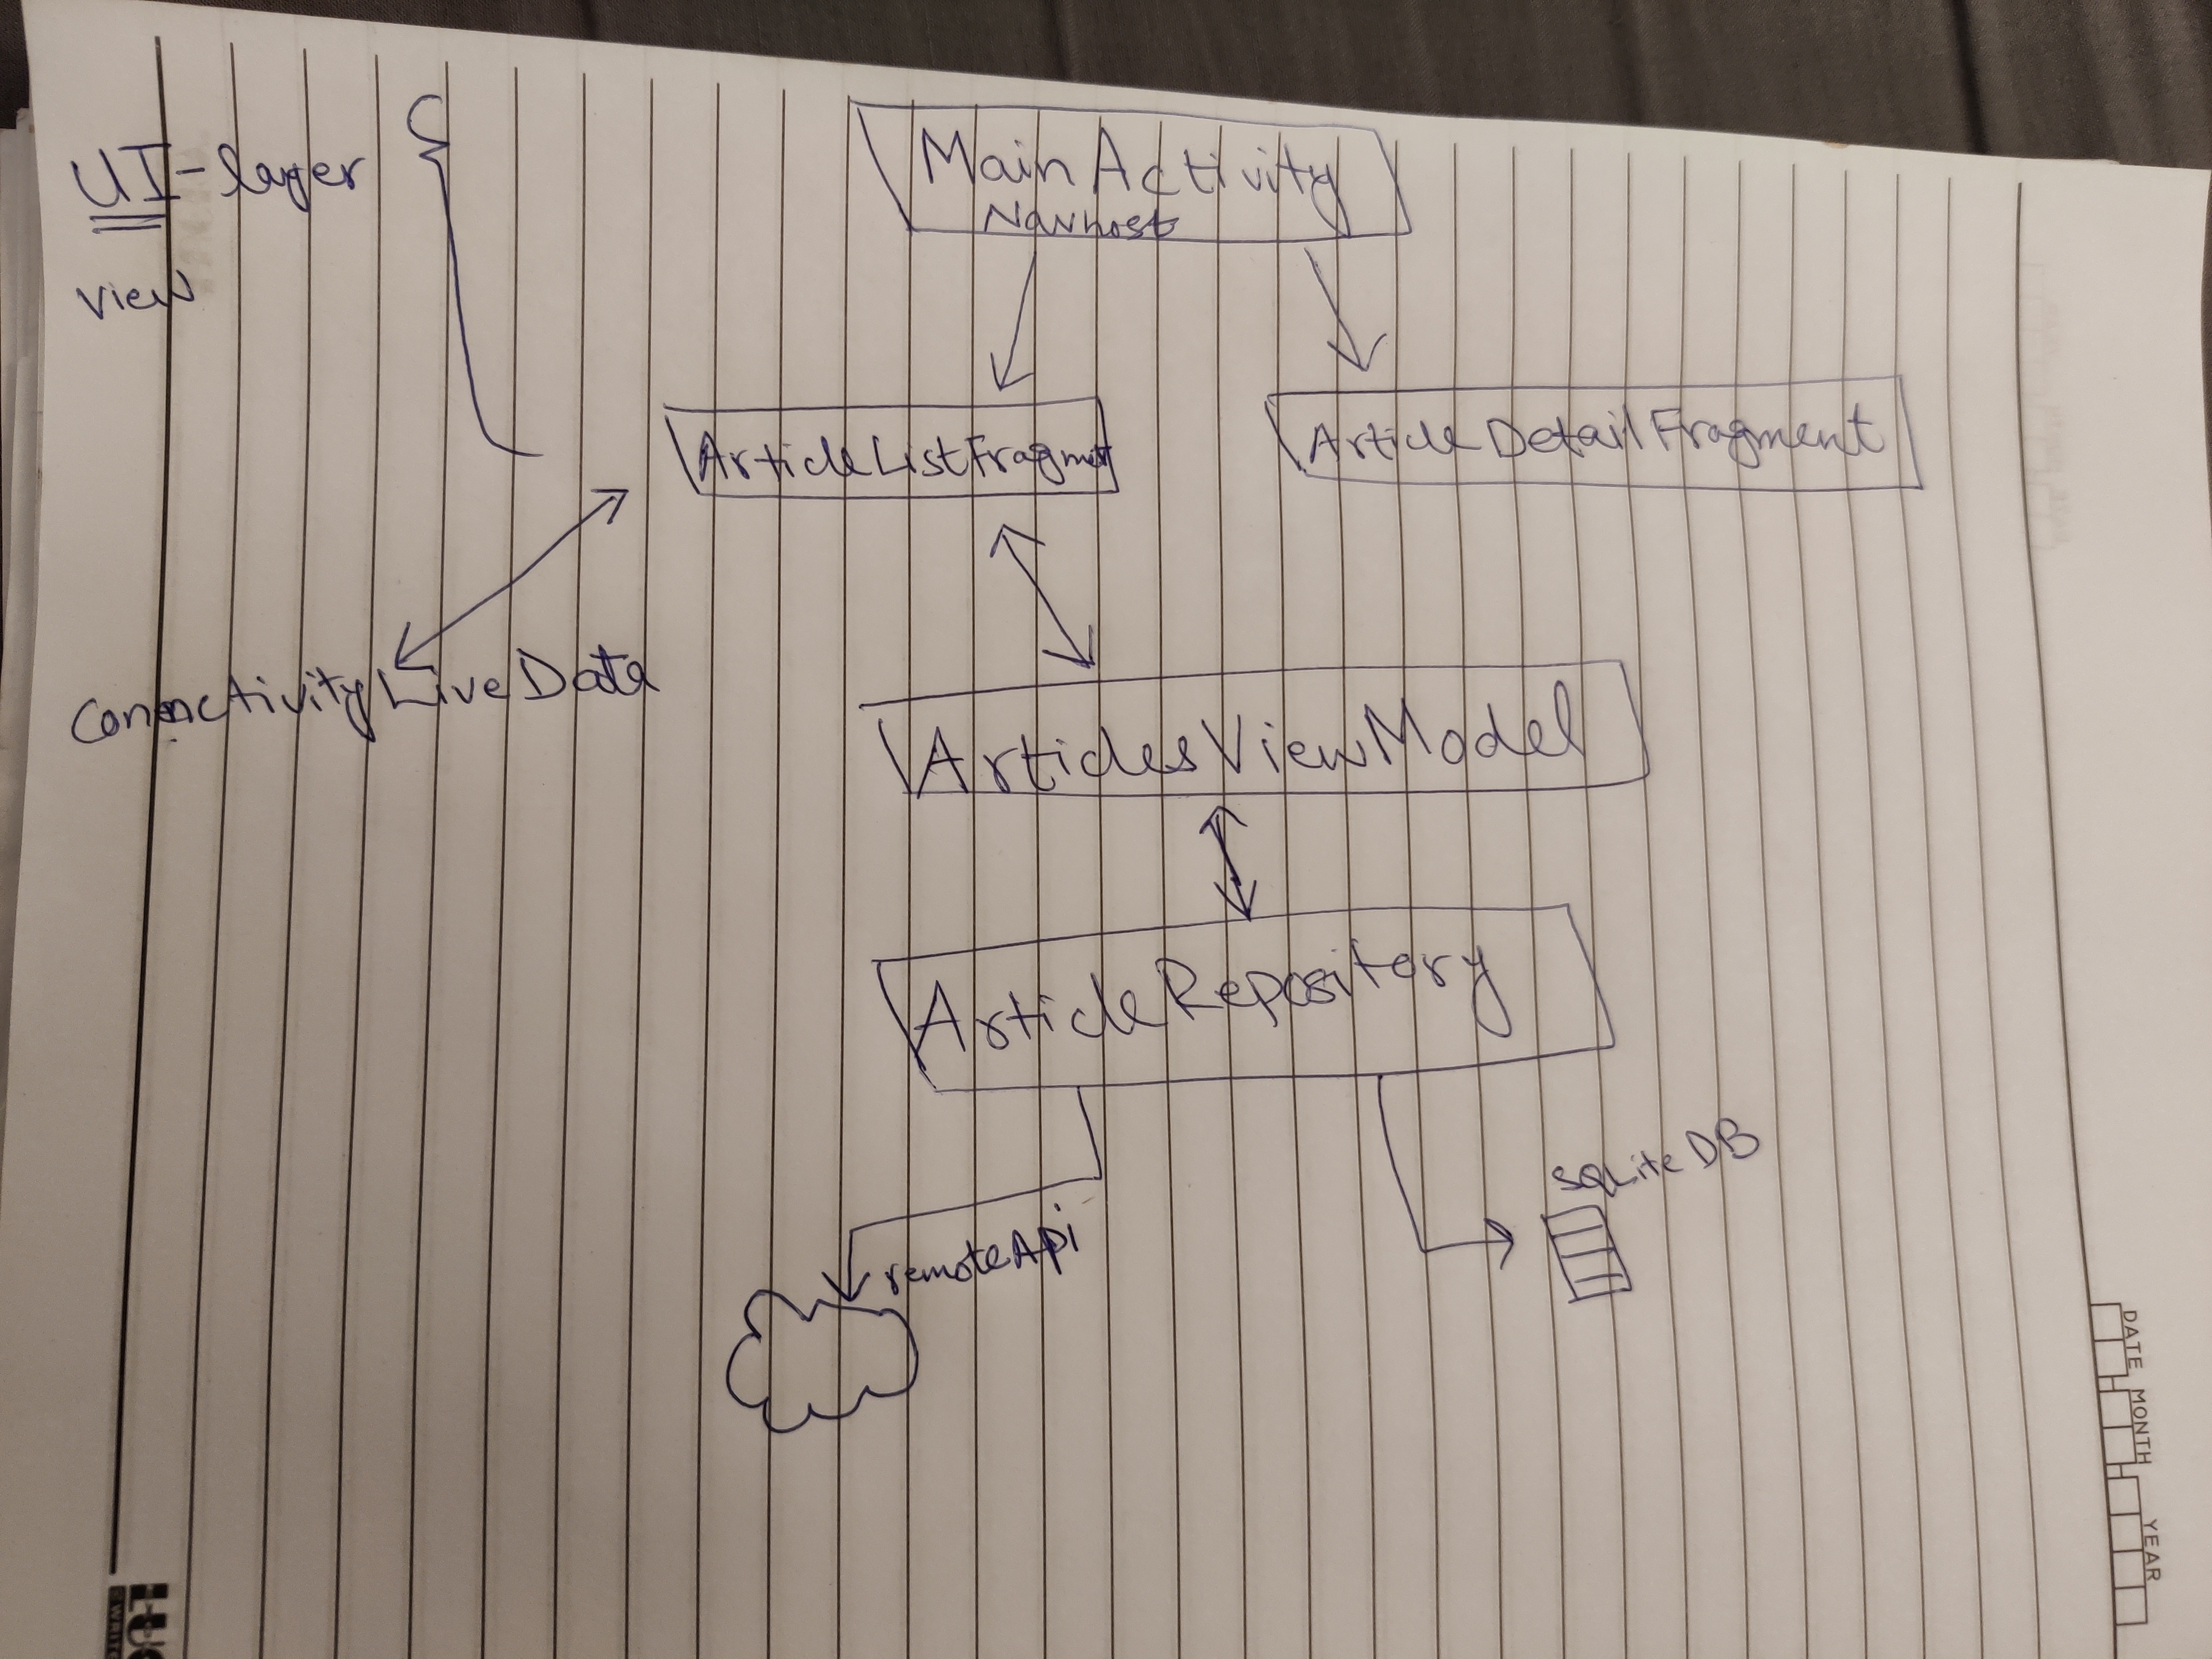 MainActivity
Navhost
UI-layer
view
ArticleListFragmet
ArticleDetailFragment
ConenctivityLiveData
ArticlesViewModel
ArticleRepository
remoteApi
SQLite DB
DATE MONTH YEAR